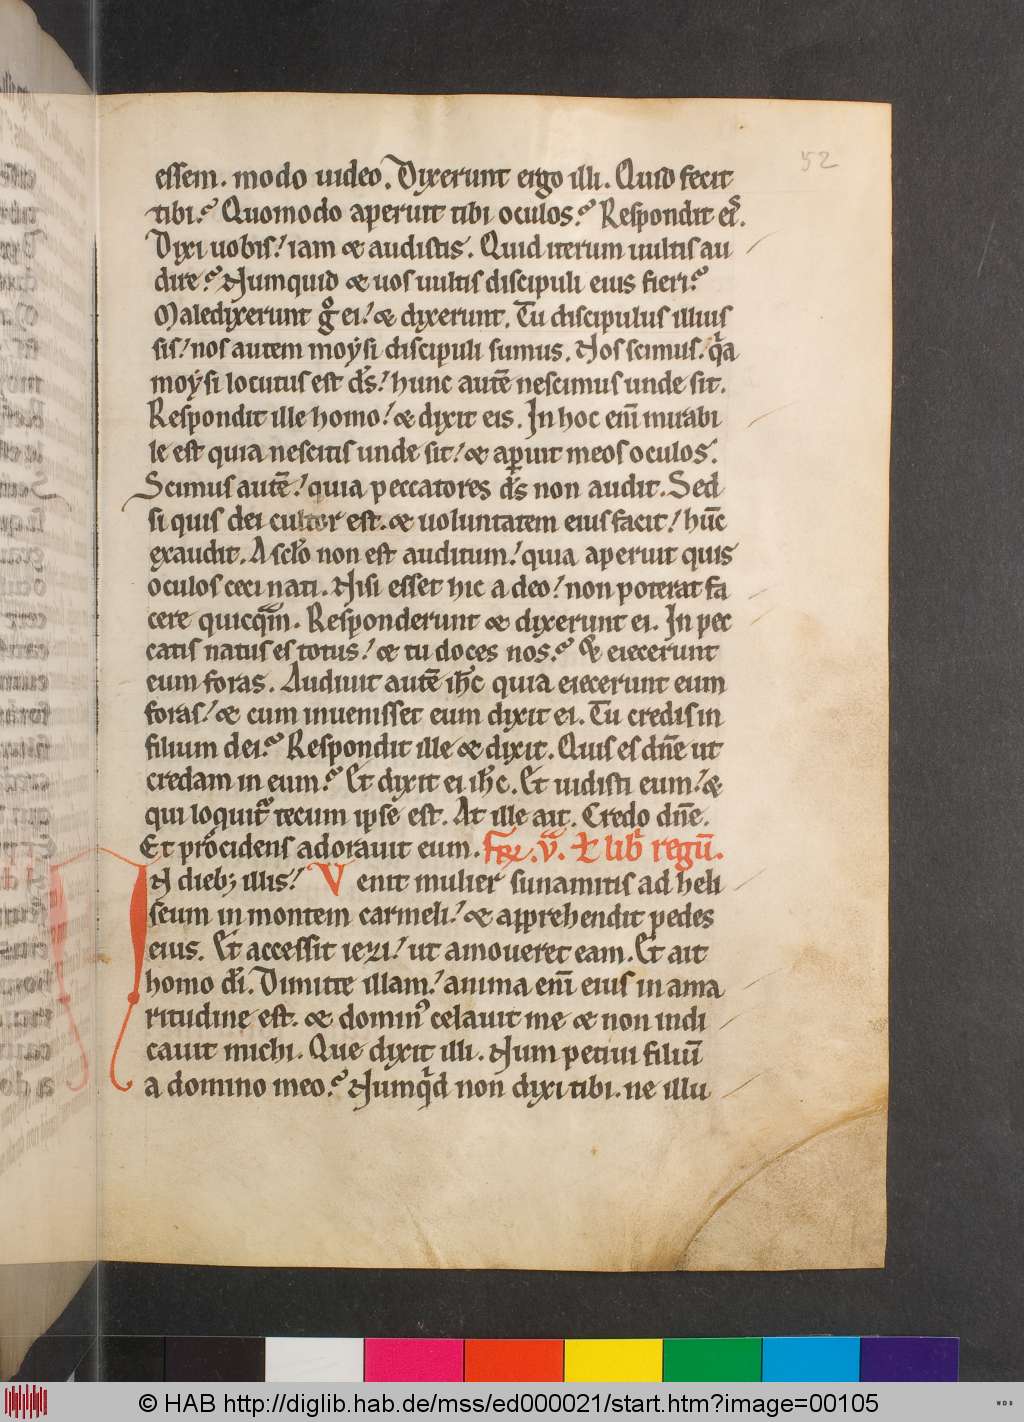 52
essem. modo uideo. Dixerunt ergo illi. Quid fecit
tibi? Quomodo aperuit tibi oculos? Respondit eis.
Dixi uobis! iam & audistis. Quid iterum uultis au
dire? Numquid & uos uultis discipuli eius fieri?
Maledixerunt gͦ ei! & dixerunt. Tu discipulus illius
sis! nos autem moysi discipuli sumus. Nos scimus. qͣa
moysi locutus est dꝰs! hunc autē nescimus unde sit.
Respondit ille homo! & dixit eis. In hoc enī mirabi
le est quia nescitis unde sit! & aꝑuit meos oculos.
Scimus autē! quia peccatores dꝰs non audit. Sed
si quis dei cultor est. & uoluntatem eius facit! hūc
exaudit. A sclo̅ non est auditum! quia aperuit quis
oculos ceci nati. Nisi esset hic a deo! non poterat fa
cere quicqͣm. Responderunt & dixerunt ei. In pec
catis natus es totus! & tu doces nos? & eiecerunt
eum foras. Audiuit autē ih̅c quia eiecerunt eum
foras! & cum inuenisset eum dixit ei. Tu credis in
filium dei? Respondit ille & dixit. Quis es dn̅e ut
credam in eum? Et dixit ei ih̅c. Et uidisti eum! &
qui loquit᷑ tecum ipse est. At ille ait. Credo dn̅e.
Et procidens adorauit eum. Fr̅. v̅. L̅ libͥ regū.
IN dieb; illis! Venit mulier sunamitis ad heli
seum in montem carmeli! & apprehendit pedes
eius. Et accessit iezi! ut amoueret eam. Et ait
homo di̅. Dimitte illam! anima enī eius in ama
ritudine est. & dominꝰ celauit me & non indi
cauit michi. Que dixit illi. Num petiui filiū
a domino meo? Numqͥd non dixi tibi. ne illu
© HAB http://diglib.hab.de/mss/ed000021/start.htm?image=00105